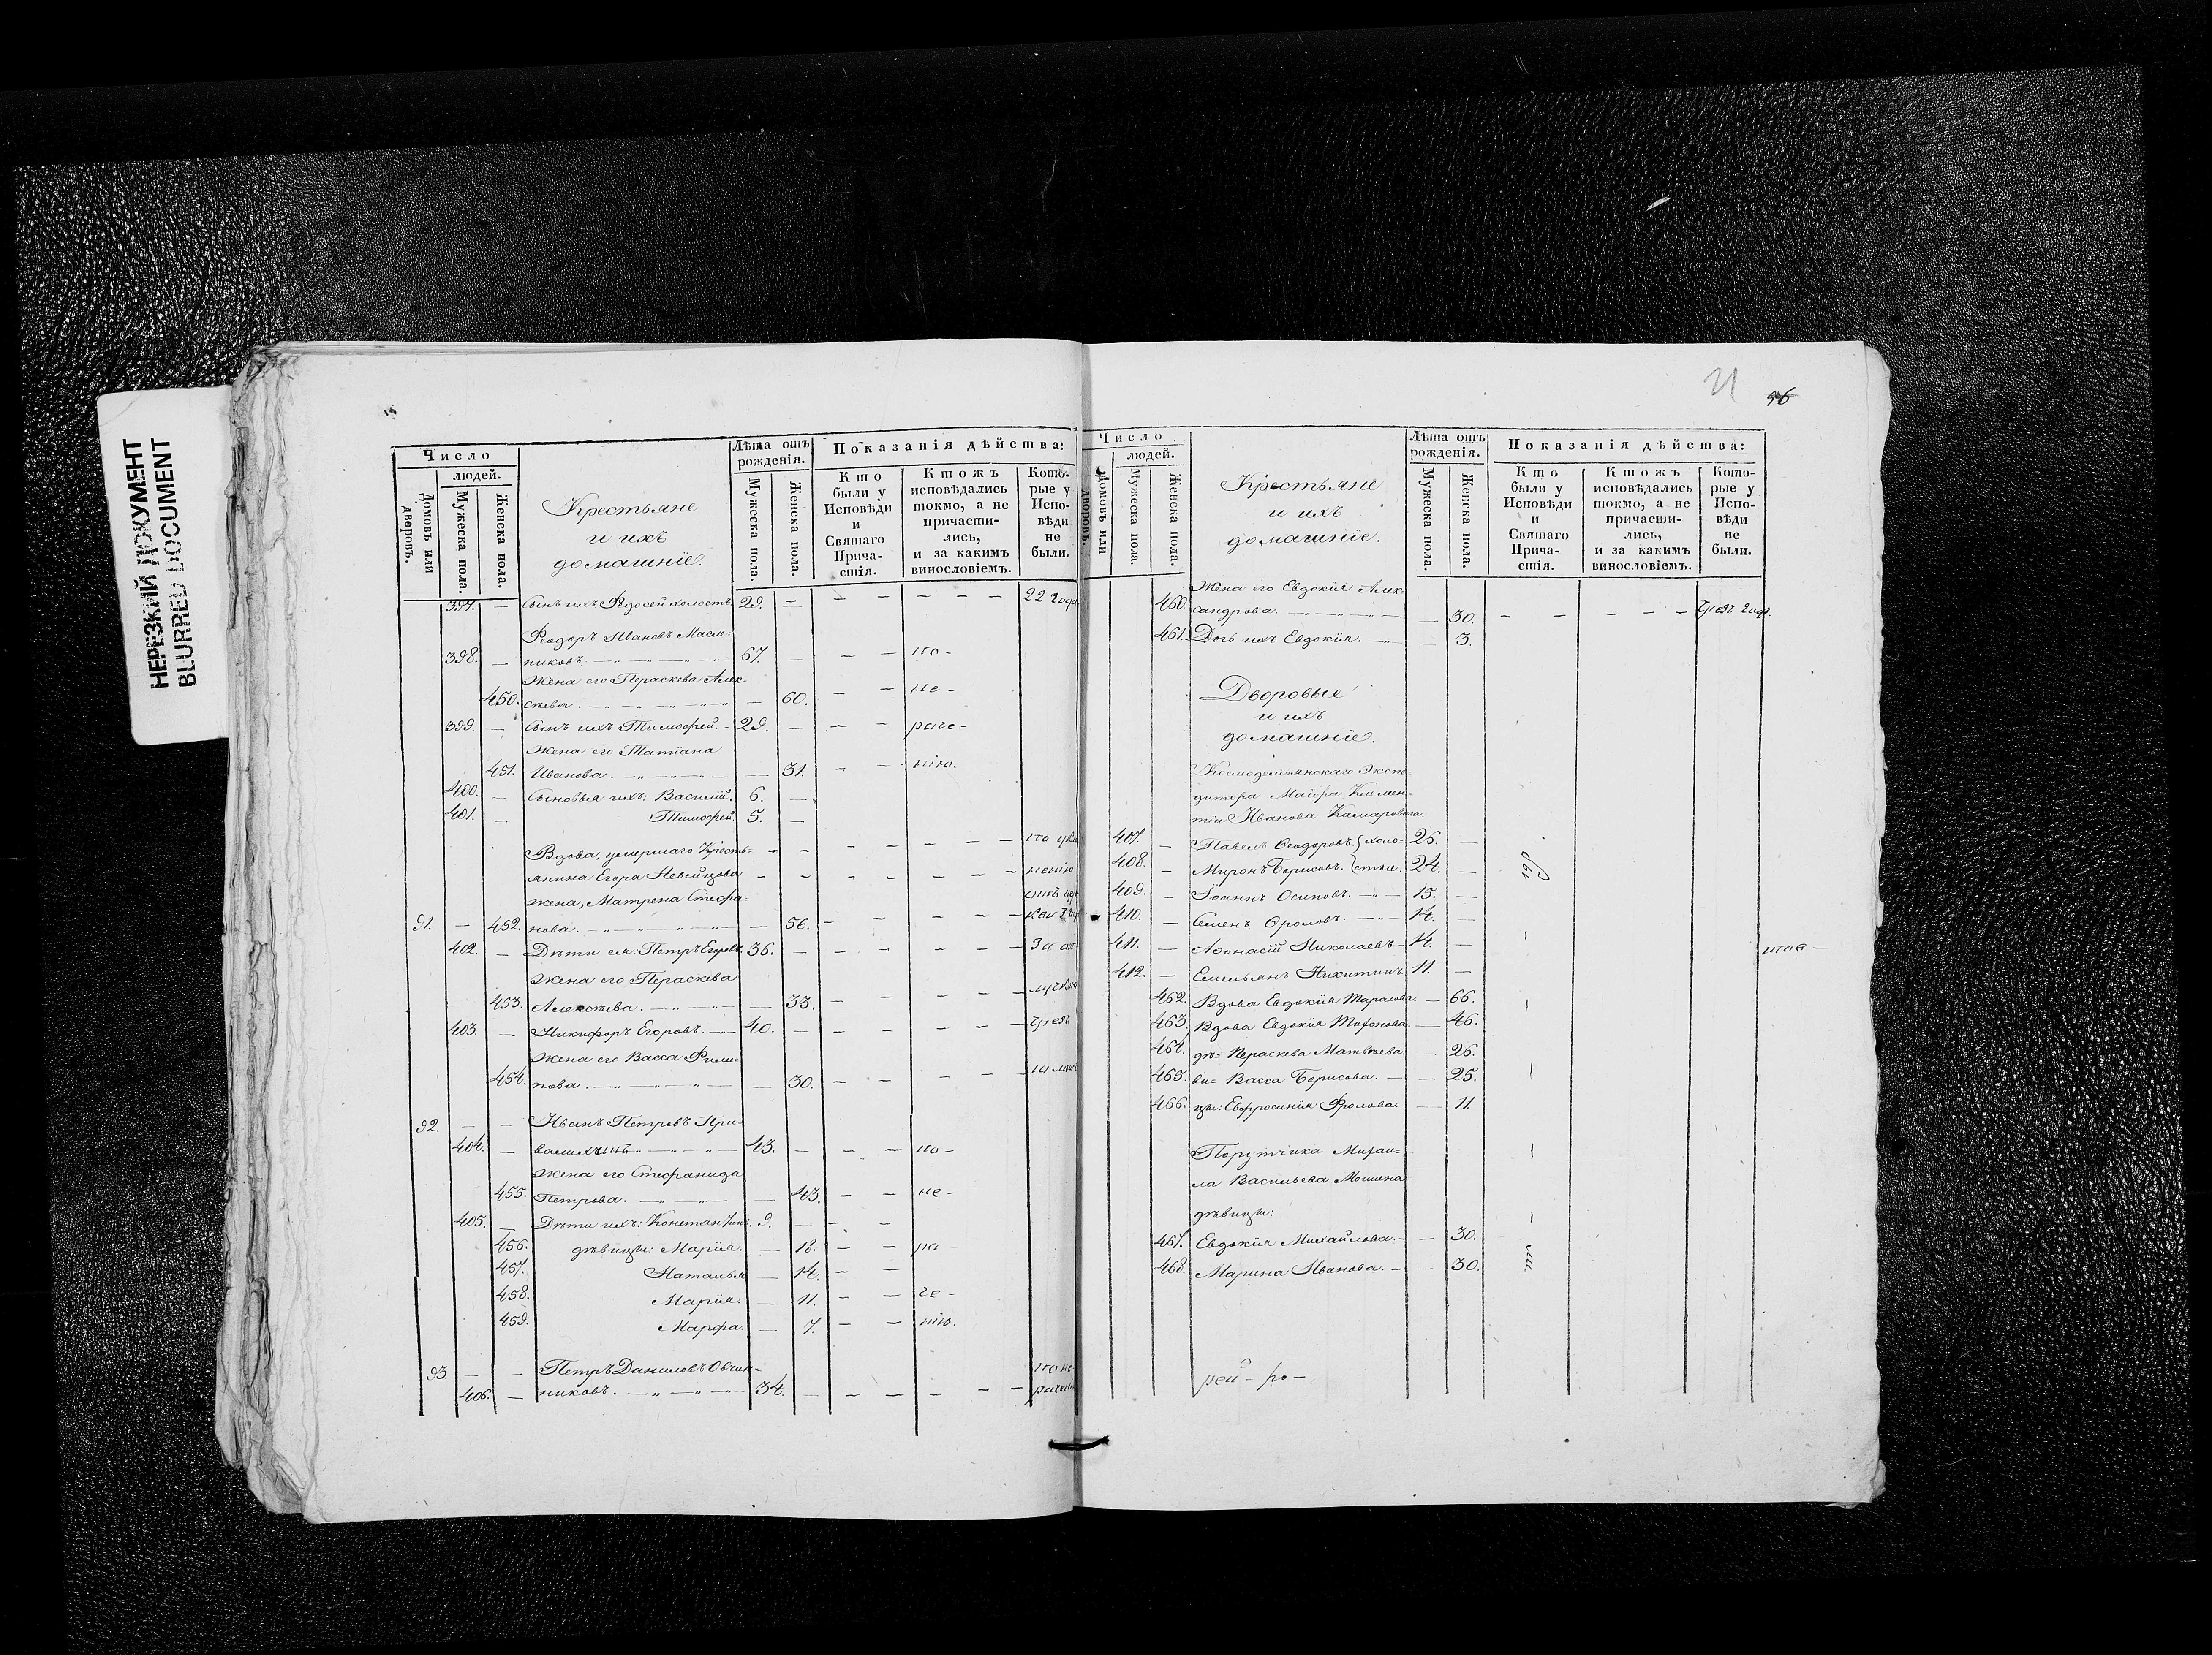 НЕРЕЗКИЙ ДОКУМЕНТ
BLURRED DOCUMENT
Число
людей.
Домовъ или дворовъ.
Мужеска пола.
Женска пола.
Крестьяне
и ихъ
домашніе.
Лѣта отъ рожденія.
Мужеска пола.
Женска пола.
Показанія дѣйства:
Кто были у Исповѣди и Святаго Прича-стія.
Ктожъ исповѣдались токмо, а не причасти-лись, и за какимъ винословіемъ.
Кото-рые у Испо-вѣди не были.
397. — Сынъ ихъ Ѳедосей холостъ. 29. — — — — — — 22 года.
Ѳеодоръ Ивановъ Масле-
398. — никовъ. 67. — — — по-
Жена его Параскева Алек-
450. сѣева. — 60. — — не-
399. — Сынъ ихъ Тимоѳей. 29. — — — раче-
Жена его Татіана
451. Иванова. — 31. — — нію.
400. — Сыновья ихъ: Василій. 6. —
401. — Тимоѳей. 5. —
Вдова, умершаго Кресть-
янина Егора
жена, Матрена Стефа-
91. — 452. нова. — 56. — — — —
402. — Дѣти ея: Петръ Егоровъ. 36. — — — — — За от
Жена его Параскева
453. Алексѣева. — 33. — — — — лучкою
403. — Никифоръ Егоровъ. 40. — — — — — чрезъ
Жена его Васса Фили-
454. пова. — 30. — — — —
92. — — Иванъ Петровъ При-
404. — 43. — — — по-
Жена его Стефанида
455. Петрова. — 43. — — не-
405. — Дѣти ихъ: Константинъ. 9. — — —
456. дѣвицы: Марія. — 18. — — ра-
457. Наталья — 14. — —
458. Марія. — 11. — — че-
459. Марѳа. — 7. — — нію.
93. — — Петръ Даниловъ Овчин-
406. — никовъ. 34. — — — — —
21
56
Число
людей.
Домовъ или дворовъ.
Мужеска пола.
Женска пола.
Крестьяне
и ихъ
домашніе.
Лѣта отъ рожденія.
Мужеска пола.
Женска пола.
Показанія дѣйства:
Кто были у Исповѣди и Святаго Прича-стія.
Ктожъ исповѣдались токмо, а не причасти-лись, и за какимъ винословіемъ.
Кото-рые у Испо-вѣди не были.
Жена его Евдокія Алек-
460. сандрова. — 30. — — — — — чрезъ
461. Дочь ихъ Евдокія. — 3.
Дворовые
и ихъ
домашніе.
Космодемьянскаго Экспе-
дитора Маіора Климен-
тія Иванова
407. — Павелъ Ѳеодоровъ. } холо- 26. —
408. — Миронъ Борисовъ. } стые. 24. —
409. — Іоаннъ Осиповъ. 15. —
410. — Семенъ Ѳроловъ. 14. —
411. — Аѳонасій Николаевъ. 14. —
412. — Емельянъ Никитинъ 11. —
462. Вдова Евдокія Тарасова. — 66.
463. Вдова Евдокія — 46.
464. дѣ- Параскева Матвѣева. — 26.
465. ви- Васса Борисова. — 25.
466. цы: Евфросинія Фролова. — 11.
Порутчика Михаи-
ла Васильева Мошина
дѣвицы:
467. Евдокія Михайлова. — 30.
468. Марина Иванова. — 30.
рей - ро -